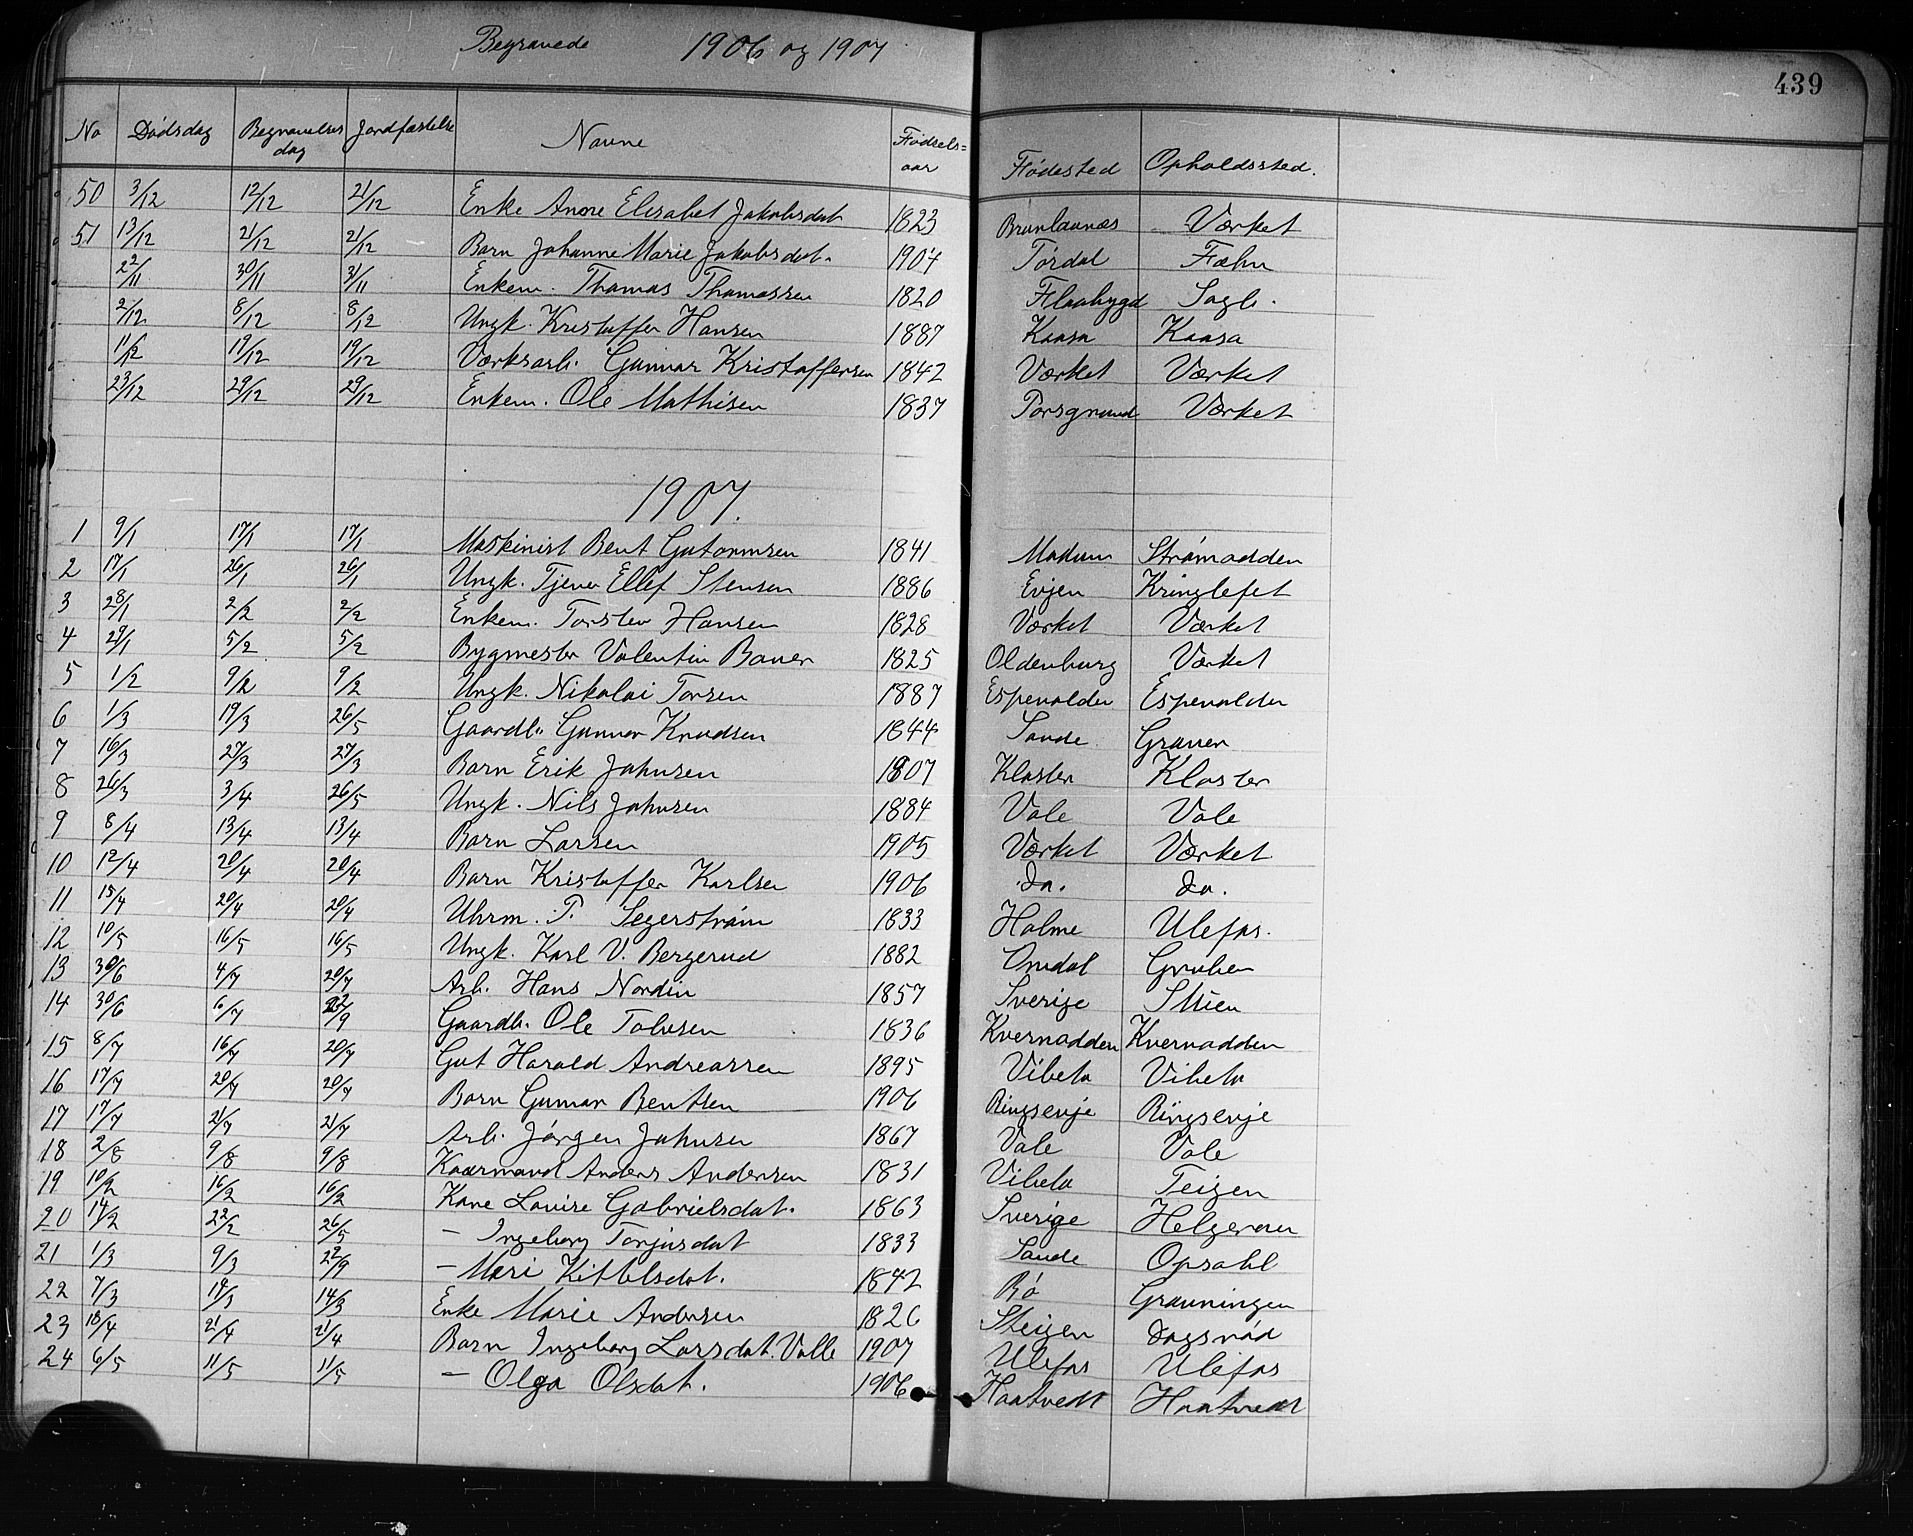 Begravede 1906 og 1907
439
No Dødsdag Begravelses dag Jordfæstelse Navne Fødsels= aar Fødested Opholdssted.
50 3/12 12/12 21/12 Enke Anne Elisabet Jakobsdat 1823 Brunlannæs Værket
51 13/12 21/12 21/12 Barn Johanne Marie Jakobsdat. 1904 Tørdal Fæhn
22/11 30/11 31/11 Enkem. Thomas Thomassen 1820 Flaabygd Sagb.
2/12 8/12 8/12 Ungk. Kristoffer Hansen 1887 Kaasa Kaasa
11/12 19/12 19/12 Værksarb. Gunnar Kristoffersen 1842 Værket Værket
23/12 29/12 29/12 Enkem. Ole Mathisen 1837 Porsgrund Værket
1907.
1 9/1 17/1 17/1 Maskinist Bent Gutormsen 1841 Modum Strømodden
2 17/1 26/1 26/1 Ungk. Tjener Ellef Stensen 1886 Evjen Kringlefet
3 28/1 2/2 2/2 Enkem. Torsten Hansen 1828 Værket Værket
4 29/1 5/2 5/2 Bygmester Valentin Bauer 1825 Oldenburg Værket
5 1/2 9/2 9/2 Ungk. Nikolai Torsen 1887 Espevalden Espevalden
6 1/3 19/3 26/5 Gaardb. Gunnar Knudsen 1844 Sande Graver
7 16/3 27/3 27/3 Barn Erik Johnsen 1907 Kloster Kloster
8 26/3 3/4 26/5 Ungk. Nils Johnsen 1884 Vale Vale
9 8/4 13/4 13/4 Barn Larsen 1905 Værket Værket
10 12/4 20/4 20/4 Barn Kristoffer Karlsen 1906 do. do.
11 15/4 20/4 20/4 Uhrm. P. Segerstrøm 1833 Holme Ulefos.
12 10/5 16/5 16/5 Ungk. Karl V. Bergerud 1882 Omdal Gruben
13 30/6 4/7 20/7 Arb. Hans Nordin 1857 Sverige Stuen
14 30/6 6/7 22/9 Gaardb. Ole Tolvsen 1836 Kvernodden Kvernodden
15 8/7 16/7 20/7 Gut Harald Andreassen 1895 Vibeto Vibeto
16 17/7 20/7 20/7 Barn Gunnar Bentsen 1906 Ringsevje Ringsevje
17 17/7 21/7 21/7 Arb. Jørgen Johnsen 1867 Vale Vale
18 2/8 9/8 9/8 Kaarmand Anders Andersen 1831 Vibeto Teigen
19 10/2 16/2 16/2 Kone Lovise Gabrielsdat. 1863 Sverige Helgeraen
20 14/2 22/2 26/5 - Ingeborg Torjusdat 1833 Sande Opsahl
21 1/3 9/3 22/9 - Mari Kittelsdat. 1842 Bø Grauningen
22 7/3 14/3 14/3 Enke Marie Andersen 1826 Steigen Dagsrød
23 18/4 21/4 21/4 Barn Ingeborg Larsdat. Valle 1907 Ulefos Ulefos
24 6/5 11/5 11/5 - Olga Olsdat. 1906 Haatvedt Haatvedt